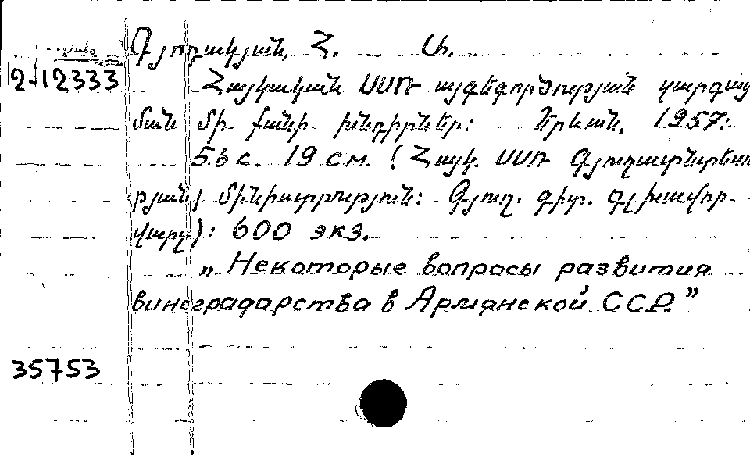 Գյուղակյան, Հ. Ս.
2-12333
Հայկական ՍՍՌ այգեգործության զարգաց
ման մի քանի խնդիրներ: Երևան, 1957:
56 с. 19 см. (Հայկ. ՍՍՌ Գյուղատնտեսու
թյան մինիստրություն: Գյուղ. գիտ. գլխավոր
վարչ): 600 экз.
„Некоторые вопросы развития
виноградарства в Армянской ССР.”
35753